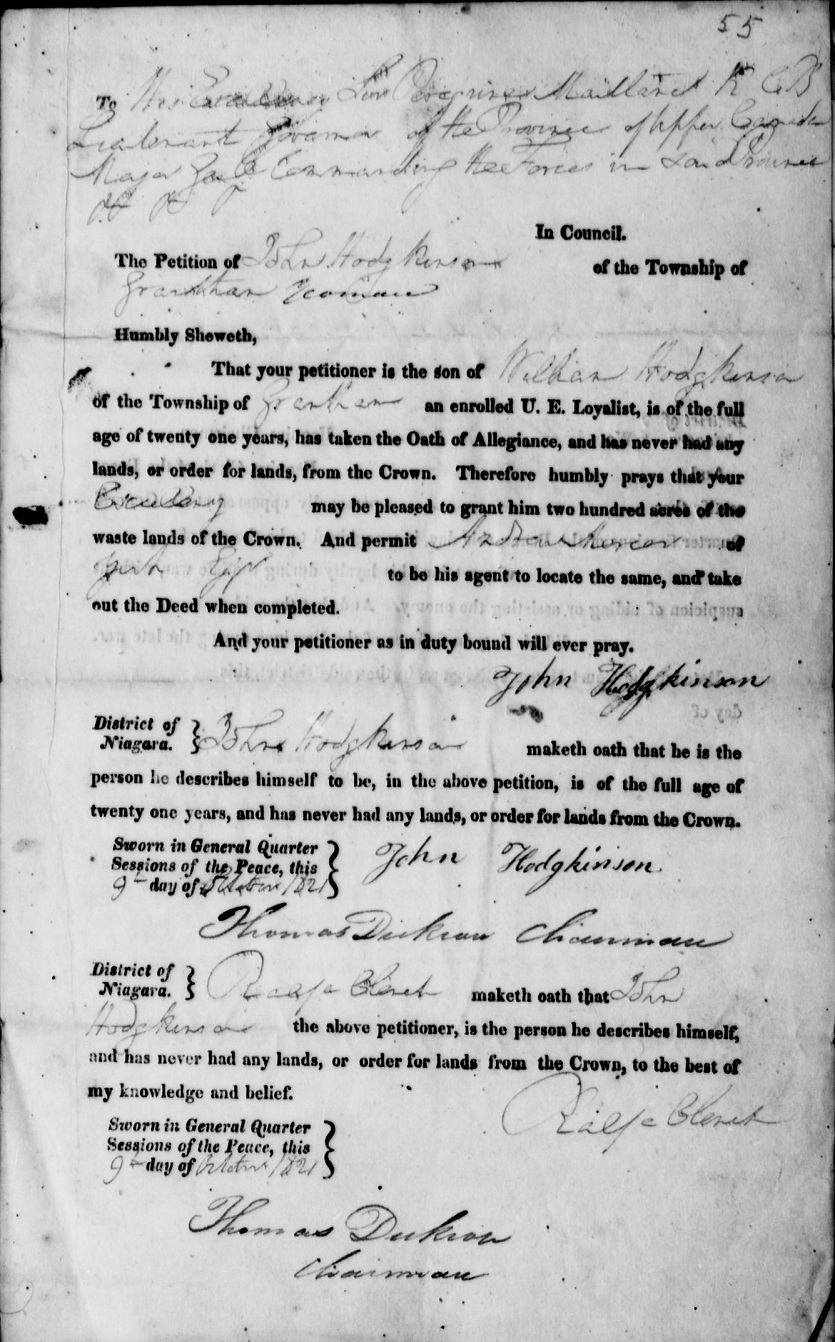 55
To His Excellency Sir Peregrine Maitland K C B
Lieutenant Governor of the Province of Upper Canada
Major Commanding the Forces in said Province
&c &c
In Council.
The Petition of John Hodgkinson of the Township of
Grantham Yeoman
Humbly Sheweth,
That your petitioner is the son of William Hodgkinson
of the Township of Grantham an enrolled U. E. Loyalist, is of the full
age of twenty one years, has taken the Oath of Allegiance, and has never had any
lands, or order for lands, from the Crown. Therefore humbly prays that your
Excellency may be pleased to grant him two hundred acres of the
waste lands of the Crown. And permit Andrew Mercer of
York to be his agent to locate the same, and take
out the Deed when completed.
And your petitioner as in duty bound will ever pray.
John Hodgkinson
District of
Niagara. } John Hodgkinson maketh oath that he is the
person he describes himself to be, in the above petition, is of the full age of
twenty one years, and has never had any lands, or order for lands from the Crown.
Sworn in General Quarter
Sessions of the Peace, this
9th day of October 1821 } John Hodgkinson
Thomas Dickson Chairman
District of
Niagara. } maketh oath that John
Hodgkinson the above petitioner, is the person he describes himself,
and has never had any lands, or order for lands from the Crown, to the best of
my knowledge and belief.
Sworn in General Quarter
Sessions of the Peace, this
9th day of October 1821 }
Thomas Dickson
Chairman